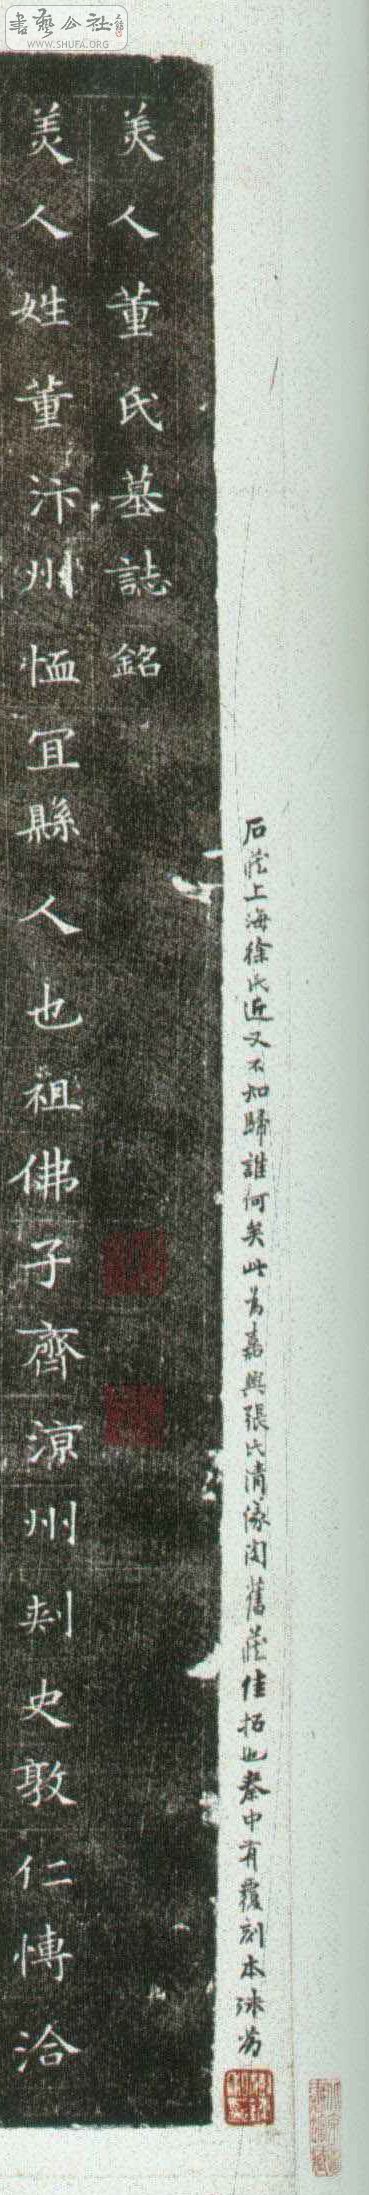 書藝公社
WWW.SHUFA.ORG
石藏上海徐氏近又不知歸誰何矣此為嘉興張氏清儀閣舊藏佳拓也秦中有覆刻本
美人董氏墓誌銘
美人姓董汴州恤冝縣人也祖佛子齊涼州刺史敦仁愽洽